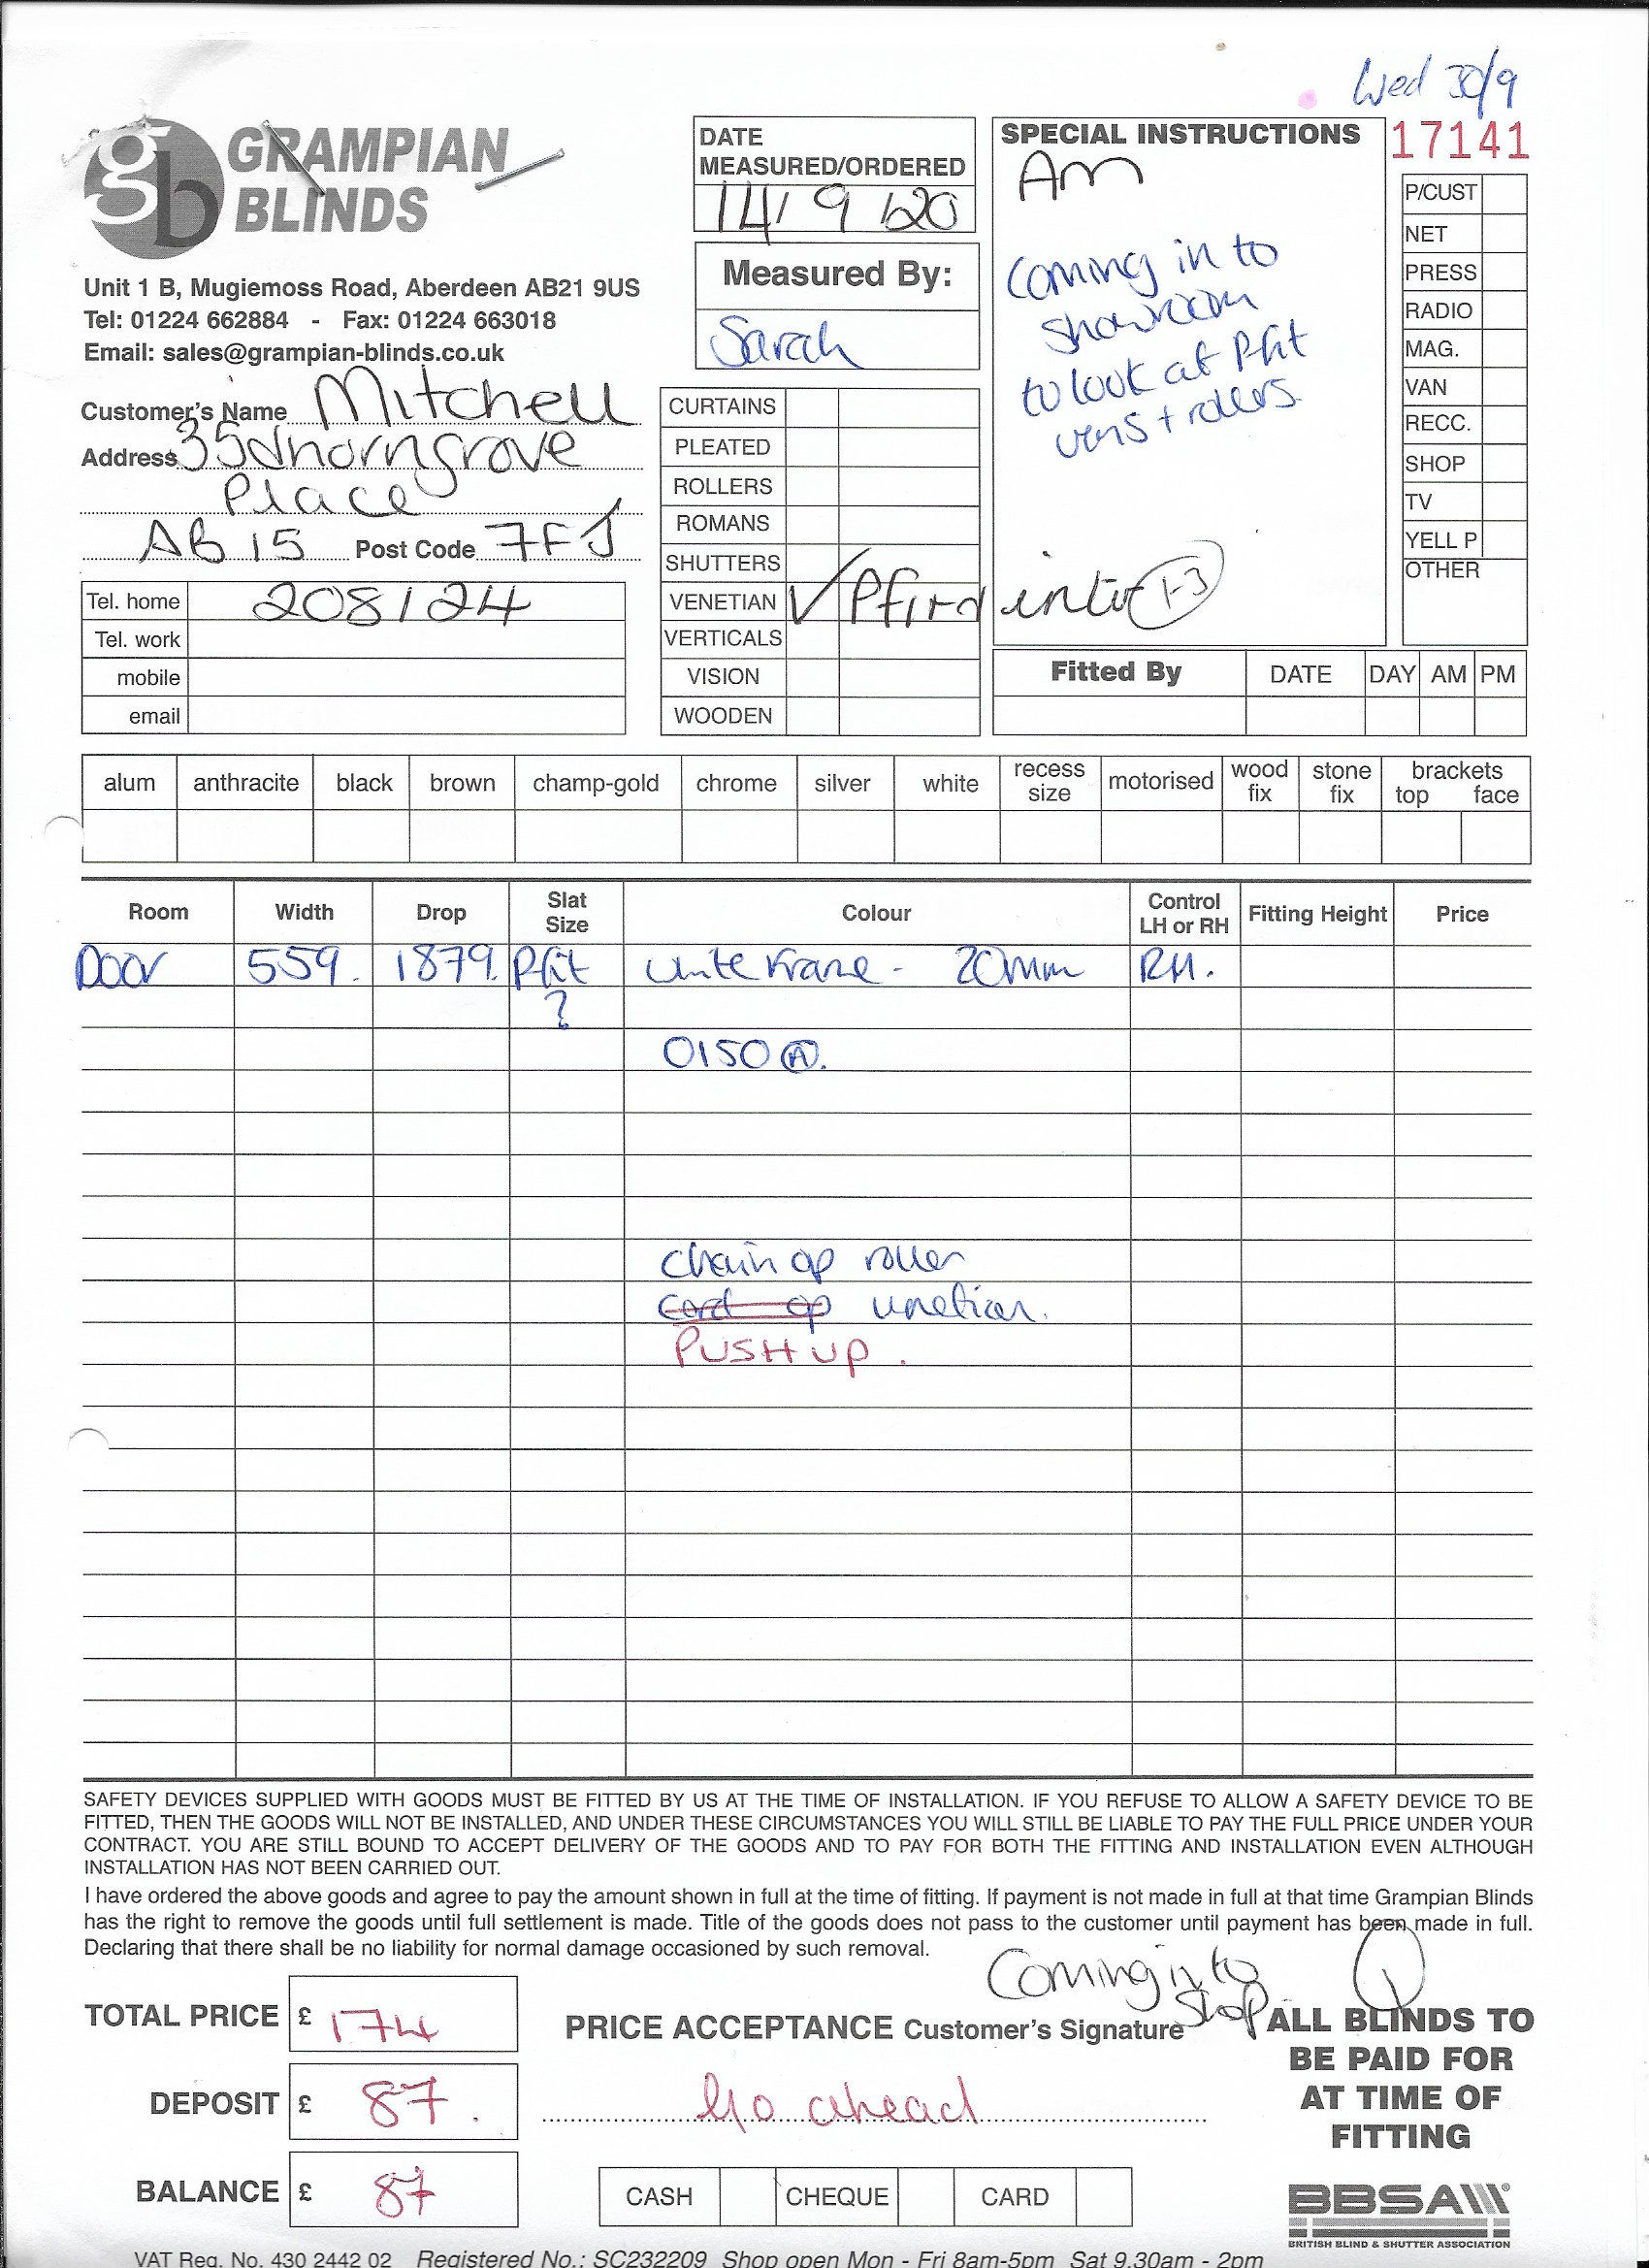 Wed 30/9
17141
gb GRAMPIAN
BLINDS
Unit 1 B, Mugiemoss Road, Aberdeen AB21 9US
Tel: 01224 662884 - Fax: 01224 663018
Email: sales@grampian-blinds.co.uk
Customer's Name Mitchell
Address 35 Thorngrove
Place
AB15 Post Code 7FJ
Tel. home 208124
Tel. work
mobile
email
DATE
MEASURED/ORDERED
14/9/20
Measured By:
Sarah
CURTAINS
PLEATED
ROLLERS
ROMANS
SHUTTERS
VENETIAN ✓ Pfit
VERTICALS
VISION
WOODEN
SPECIAL INSTRUCTIONS
Am
Coming in to
showroom
to look at Pfit
vens + rollers.
1-3
P/CUST
NET
PRESS
RADIO
MAG.
VAN
RECC.
SHOP
TV
YELL P
OTHER
Fitted By DATE DAY AM PM
alum anthracite black brown champ-gold chrome silver white recess size motorised wood fix stone fix brackets top face
Room Width Drop Slat Size Colour Control LH or RH Fitting Height Price
Door 559. 1879. Pfit white frame - 20mm RH.
?
0150 A.
Chain op roller
Cord op venetian.
PUSH UP.
SAFETY DEVICES SUPPLIED WITH GOODS MUST BE FITTED BY US AT THE TIME OF INSTALLATION. IF YOU REFUSE TO ALLOW A SAFETY DEVICE TO BE
FITTED, THEN THE GOODS WILL NOT BE INSTALLED, AND UNDER THESE CIRCUMSTANCES YOU WILL STILL BE LIABLE TO PAY THE FULL PRICE UNDER YOUR
CONTRACT. YOU ARE STILL BOUND TO ACCEPT DELIVERY OF THE GOODS AND TO PAY FOR BOTH THE FITTING AND INSTALLATION EVEN ALTHOUGH
INSTALLATION HAS NOT BEEN CARRIED OUT.
I have ordered the above goods and agree to pay the amount shown in full at the time of fitting. If payment is not made in full at that time Grampian Blinds
has the right to remove the goods until full settlement is made. Title of the goods does not pass to the customer until payment has been made in full.
Declaring that there shall be no liability for normal damage occasioned by such removal.
Coming in to
shop
TOTAL PRICE £ 174
DEPOSIT £ 87.
BALANCE £ 87
PRICE ACCEPTANCE Customer's Signature
Go ahead
CASH CHEQUE CARD
ALL BLINDS TO
BE PAID FOR
AT TIME OF
FITTING
BBSA
BRITISH BLIND & SHUTTER ASSOCIATION
VAT Reg. No. 430 2442 02 Registered No.: SC232209 Shop open Mon - Fri 8am-5pm Sat 9.30am - 2pm